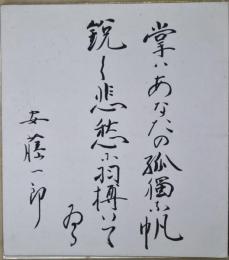 掌はあなたの孤獨な帆
鋭く悲愁に羽搏いて
ゐる
安藤一郎